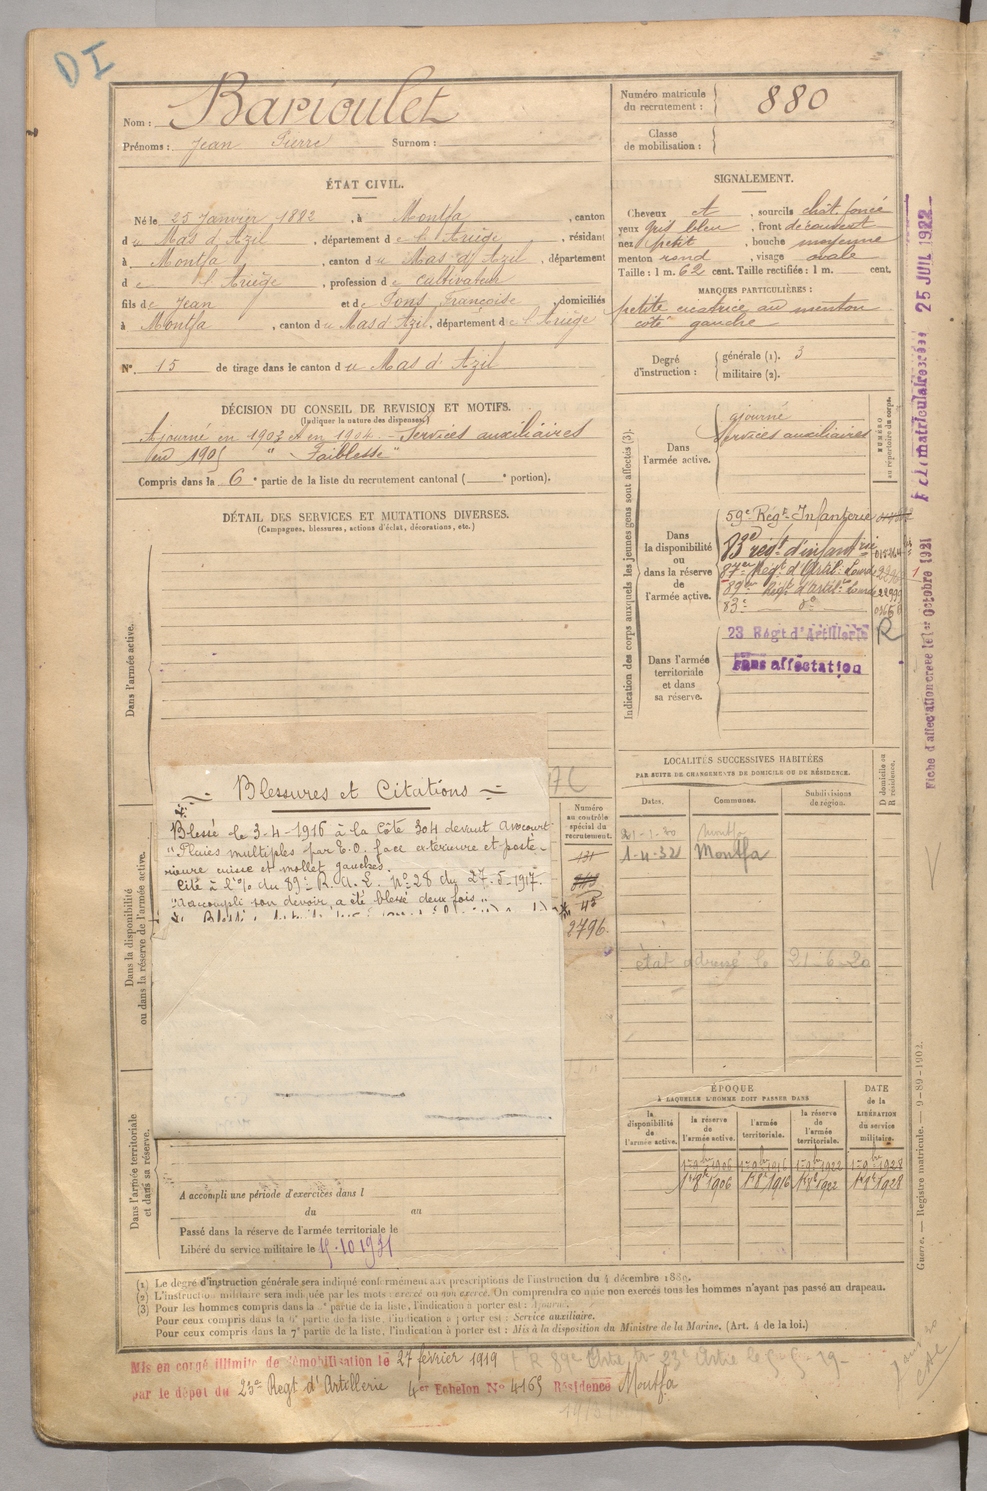 DI
Nom : Barioulet
Prénoms : Jean Pierre Surnom :
Numéro matricule du recrutement : 880
Classe de mobilisation :
ÉTAT CIVIL.
Né le 25 Janvier 1882, à Montfa, canton
du Mas d'Azil, département de l'Ariège, résidant
à Montfa, canton du Mas d'Azil, département
de l'Ariège, profession de cultivateur
fils de Jean et de Pons Françoise, domiciliés
à Montfa, canton du Mas d'Azil, département de l'Ariège
N° 15 de tirage dans le canton du Mas d'Azil
SIGNALEMENT.
Cheveux et, sourcils chât. foncé
yeux gris bleu, front découvert
nez petit, bouche moyenne
menton rond, visage ovale
Taille : 1 m. 62 cent. Taille rectifiée : 1 m. cent.
MARQUES PARTICULIÈRES :
petite cicatrice au menton
côté gauche
Degré d'instruction : générale (1). 3
militaire (2).
DÉCISION DU CONSEIL DE REVISION ET MOTIFS.
(Indiquer la nature des dispenses.)
Ajourné en 1903 et en 1904. - Services auxiliaires
en 1905 " Faiblesse "
Compris dans la 6e partie de la liste du recrutement cantonal ( e portion).
DÉTAIL DES SERVICES ET MUTATIONS DIVERSES.
(Campagnes, blessures, actions d'éclat, décorations, etc.)
Dans l'armée active.
Dans la disponibilité
ou dans la réserve de l'armée active.
Dans l'armée territoriale
et dans sa réserve.
Indication des corps auxquels les jeunes gens sont affectés (3).
NUMÉRO au répertoire du corps.
Dans l'armée active.
ajourné
Services auxiliaires
Dans la disponibilité ou dans la réserve de l'armée active.
59e Régt Infanterie
83e régt d'infanterie
87e Régt d'Artil. Lourde
89e Régt d'Artil. Lourde
83e do
Dans l'armée territoriale et dans sa réserve.
23 Régt d'Artillerie R
Sans affectation
Blessures et Citations
Blessé le 3-4-1916 à la Côte 304 devant Avocourt
"Plaies multiples par E.O. face antérieure et posté-
rieure cuisse et mollet gauches.
Cité à l'% du 89e R.A.L. N° 28 du 27-5-1917.
"A accompli son devoir, a été blessé deux fois"
Numéro au contrôle spécial du recrutement.
131
45
2796.
LOCALITÉS SUCCESSIVES HABITÉES
PAR SUITE DE CHANGEMENTS DE DOMICILE OU DE RÉSIDENCE.
Dates. Communes. Subdivisions de région. D domicile ou R résidence.
Montfa
1-4-32 Montfa
état adressé le 21-6-20
ÉPOQUE
À LAQUELLE L'HOMME DOIT PASSER DANS
la disponibilité de l'armée active. la réserve de l'armée active. l'armée territoriale. la réserve de l'armée territoriale.
DATE de la LIBÉRATION du service militaire.
1er 9bre 1906 1er 9bre 1916 1er 9bre 1922 1er 9bre 1928
1er 8bre 1906 1er 8bre 1916 1er 8bre 1922 1er 8bre 1928
A accompli une période d'exercices dans l
du au
Passé dans la réserve de l'armée territoriale le
Libéré du service militaire le 15.10.1931
(1) Le degré d'instruction générale sera indiqué conformément aux prescriptions de l'instruction du 4 décembre 1889.
(2) L'instruction militaire sera indiquée par les mots : exercé ou non exercé. On comprendra comme non exercés tous les hommes n'ayant pas passé au drapeau.
(3) Pour les hommes compris dans la 5e partie de la liste, l'indication à porter est : Ajourné.
Pour ceux compris dans la 6e partie de la liste, l'indication à porter est : Service auxiliaire.
Pour ceux compris dans la 7e partie de la liste, l'indication à porter est : Mis à la disposition du Ministre de la Marine. (Art. 4 de la loi.)
Mis en congé illimité de démobilisation le 27 février 1919
par le dépôt du 23e Regt d'Artillerie 4e Echelon N° 4165 Résidence Montfa
Guerre. — Registre matricule. — 9-89-1902.
Fiche d'affectation créée le 1er Octobre 1921
25 JUIL 1922